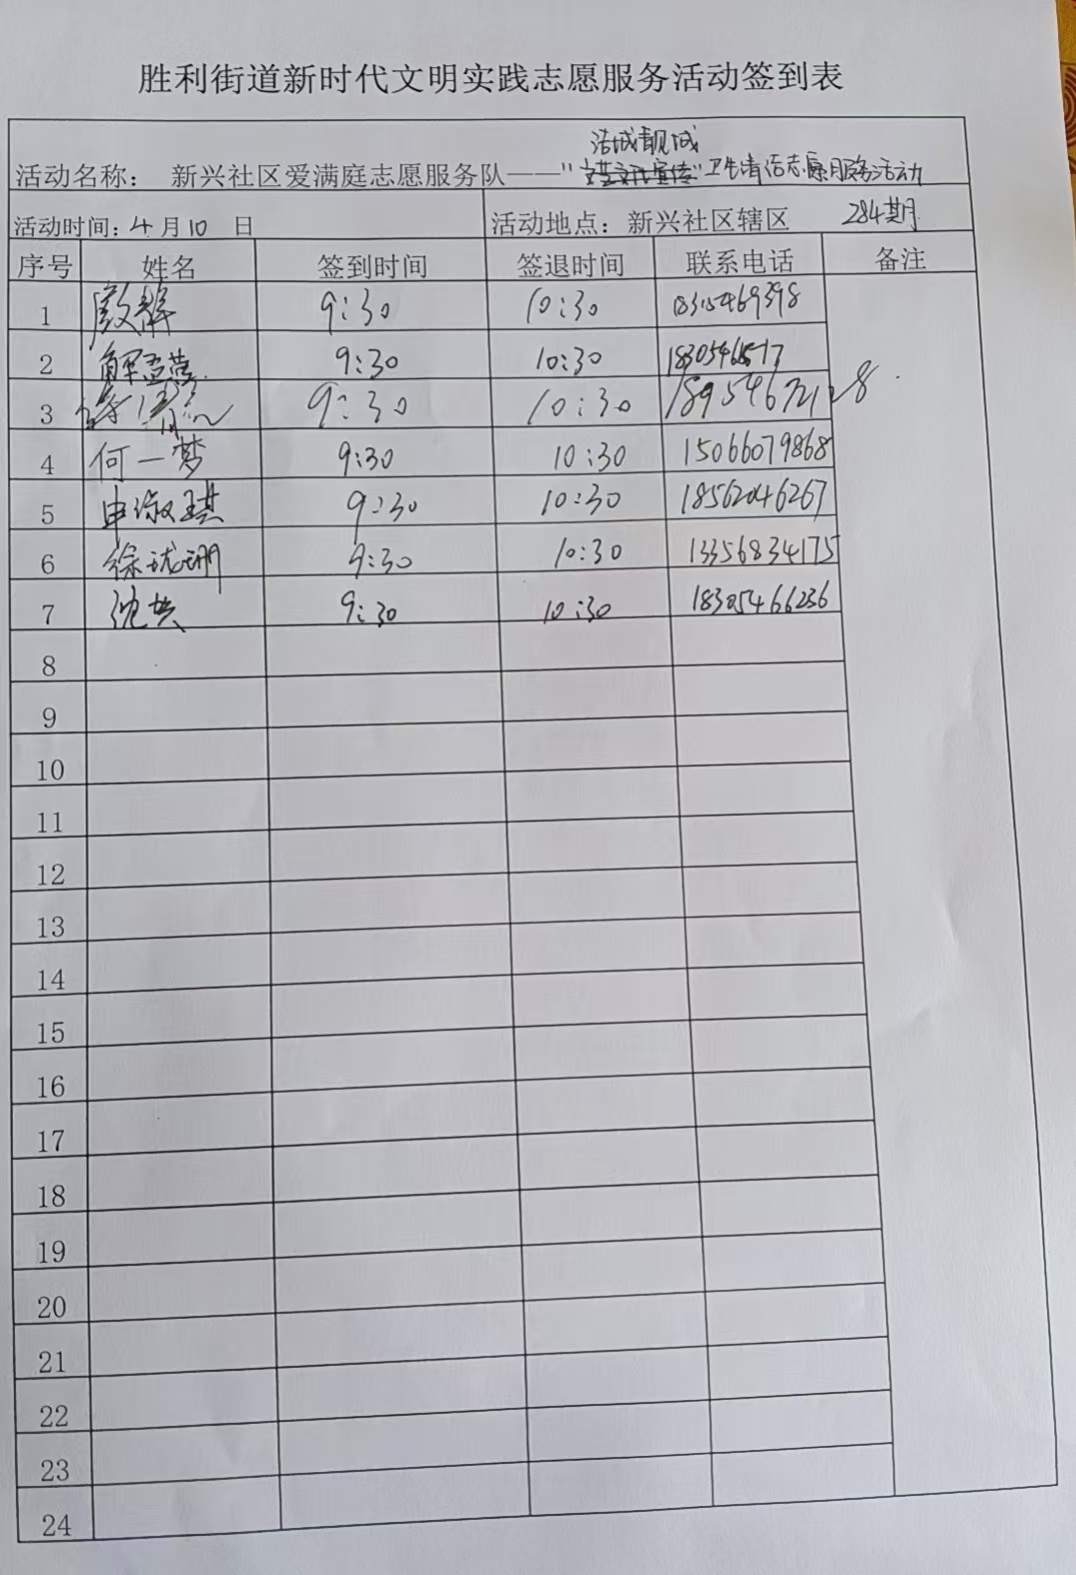 胜利街道新时代文明实践志愿服务活动签到表
洁城靓城
活动名称： 新兴社区爱满庭志愿服务队——“ ”卫生清洁志愿服务活动
活动时间：4月10 日 活动地点：新兴社区辖区 284期
序号 姓名 签到时间 签退时间 联系电话 备注
1 9:30 10:30
2 解孟营 9:30 10:30
3 9:30 10:30 18954672128
4 何一梦 9:30 10:30 15066079868
5 申淑琪 9:30 10:30 18562046267
6 徐珑珊 9:30 10:30 13356834175
7 9:30 10:30 18305466236
8
9
10
11
12
13
14
15
16
17
18
19
20
21
22
23
24